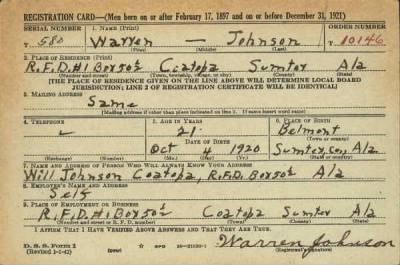 REGISTRATION CARD—(Men born on or after February 17, 1897 and on or before December 31, 1921)
SERIAL NUMBER 1. NAME (Print) ORDER NUMBER
T 580 Warren — Johnson T 10146
(First) (Middle) (Last)
2. PLACE OF RESIDENCE (Print)
R.F.D.#1 Box 50½ Coatopa Sumter Ala
(Number and street) (Town, township, village, or city) (County) (State)
[THE PLACE OF RESIDENCE GIVEN ON THE LINE ABOVE WILL DETERMINE LOCAL BOARD
JURISDICTION; LINE 2 OF REGISTRATION CERTIFICATE WILL BE IDENTICAL]
3. MAILING ADDRESS
Same
(Mailing address if other than place indicated on line 2. If same insert word same)
4. TELEPHONE 5. AGE IN YEARS 6. PLACE OF BIRTH
21 Belmont
DATE OF BIRTH (Town or county)
Oct 4 1920 Sumter, Co, Ala
(Exchange) (Number) (Mo.) (Day) (Yr.) (State or country)
7. NAME AND ADDRESS OF PERSON WHO WILL ALWAYS KNOW YOUR ADDRESS
Will Johnson Coatopa, R.F.D. Box 50½ Ala
8. EMPLOYER'S NAME AND ADDRESS
Self
9. PLACE OF EMPLOYMENT OR BUSINESS
R.F.D.#1 Box 50½ Coatopa Sumter Ala
(Number and street or R. F. D. number) (Town) (County) (State)
I AFFIRM THAT I HAVE VERIFIED ABOVE ANSWERS AND THAT THEY ARE TRUE.
D. S. S. Form 1
(Revised 1-1-42) GPO 16—21630-1 Warren Johnson
(Registrant's signature)